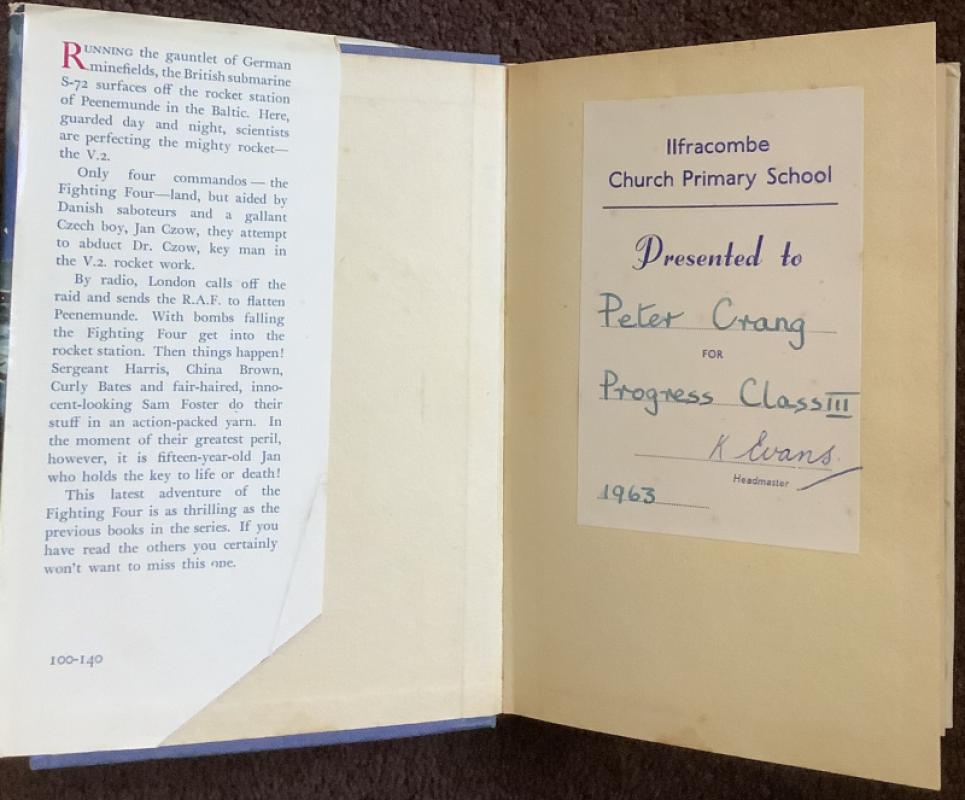 RUNNING the gauntlet of German
minefields, the British submarine
S-72 surfaces off the rocket station
of Peenemunde in the Baltic. Here,
guarded day and night, scientists
are perfecting the mighty rocket—
the V.2.
Only four commandos — the
Fighting Four—land, but aided by
Danish saboteurs and a gallant
Czech boy, Jan Czow, they attempt
to abduct Dr. Czow, key man in
the V.2. rocket work.
By radio, London calls off the
raid and sends the R.A.F. to flatten
Peenemunde. With bombs falling
the Fighting Four get into the
rocket station. Then things happen!
Sergeant Harris, China Brown,
Curly Bates and fair-haired, inno-
cent-looking Sam Foster do their
stuff in an action-packed yarn. In
the moment of their greatest peril,
however, it is fifteen-year-old Jan
who holds the key to life or death!
This latest adventure of the
Fighting Four is as thrilling as the
previous books in the series. If you
have read the others you certainly
won't want to miss this one.
100-140
Ilfracombe
Church Primary School
Presented to
Peter Crang
FOR
Progress Class III
K Evans
Headmaster
1963